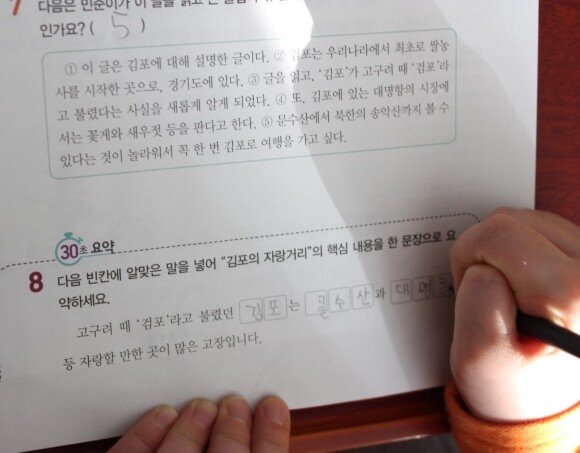 7 다음은 민준이가 이 글을 읽고
인가요? ( 5 )
① 이 글은 김포에 대해 설명한 글이다. ② 김포는 우리나라에서 최초로 쌀농
사를 시작한 곳으로, 경기도에 있다. ③ 글을 읽고, ‘김포’가 고구려 때 ‘검포’라
고 불렸다는 사실을 새롭게 알게 되었다. ④ 또, 김포에 있는 대명항의 시장에
서는 꽃게와 새우젓 등을 판다고 한다. ⑤ 문수산에서 북한의 송악산까지 볼 수
있다는 것이 놀라워서 꼭 한 번 김포로 여행을 가고 싶다.
30초 요약
8 다음 빈칸에 알맞은 말을 넣어 “김포의 자랑거리”의 핵심 내용을 한 문장으로 요
약하세요.
고구려 때 ‘검포’라고 불렸던 김포는 문수산과 대명
등 자랑할 만한 곳이 많은 고장입니다.